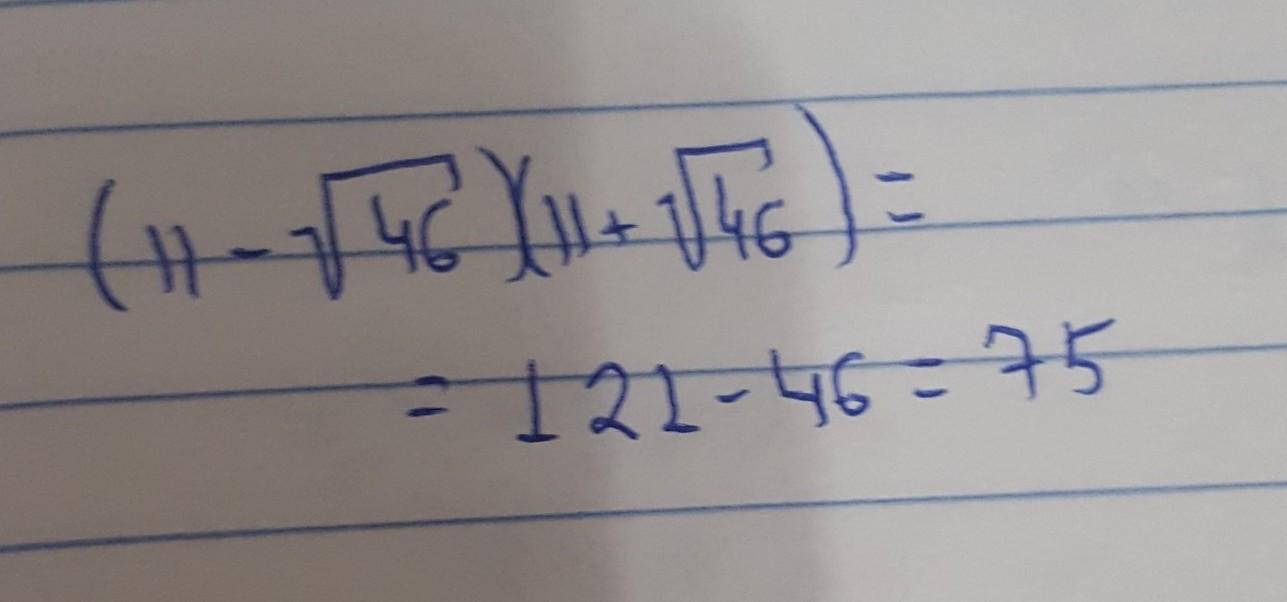 (11-√46)(11+√46)=
= 121-46 = 75